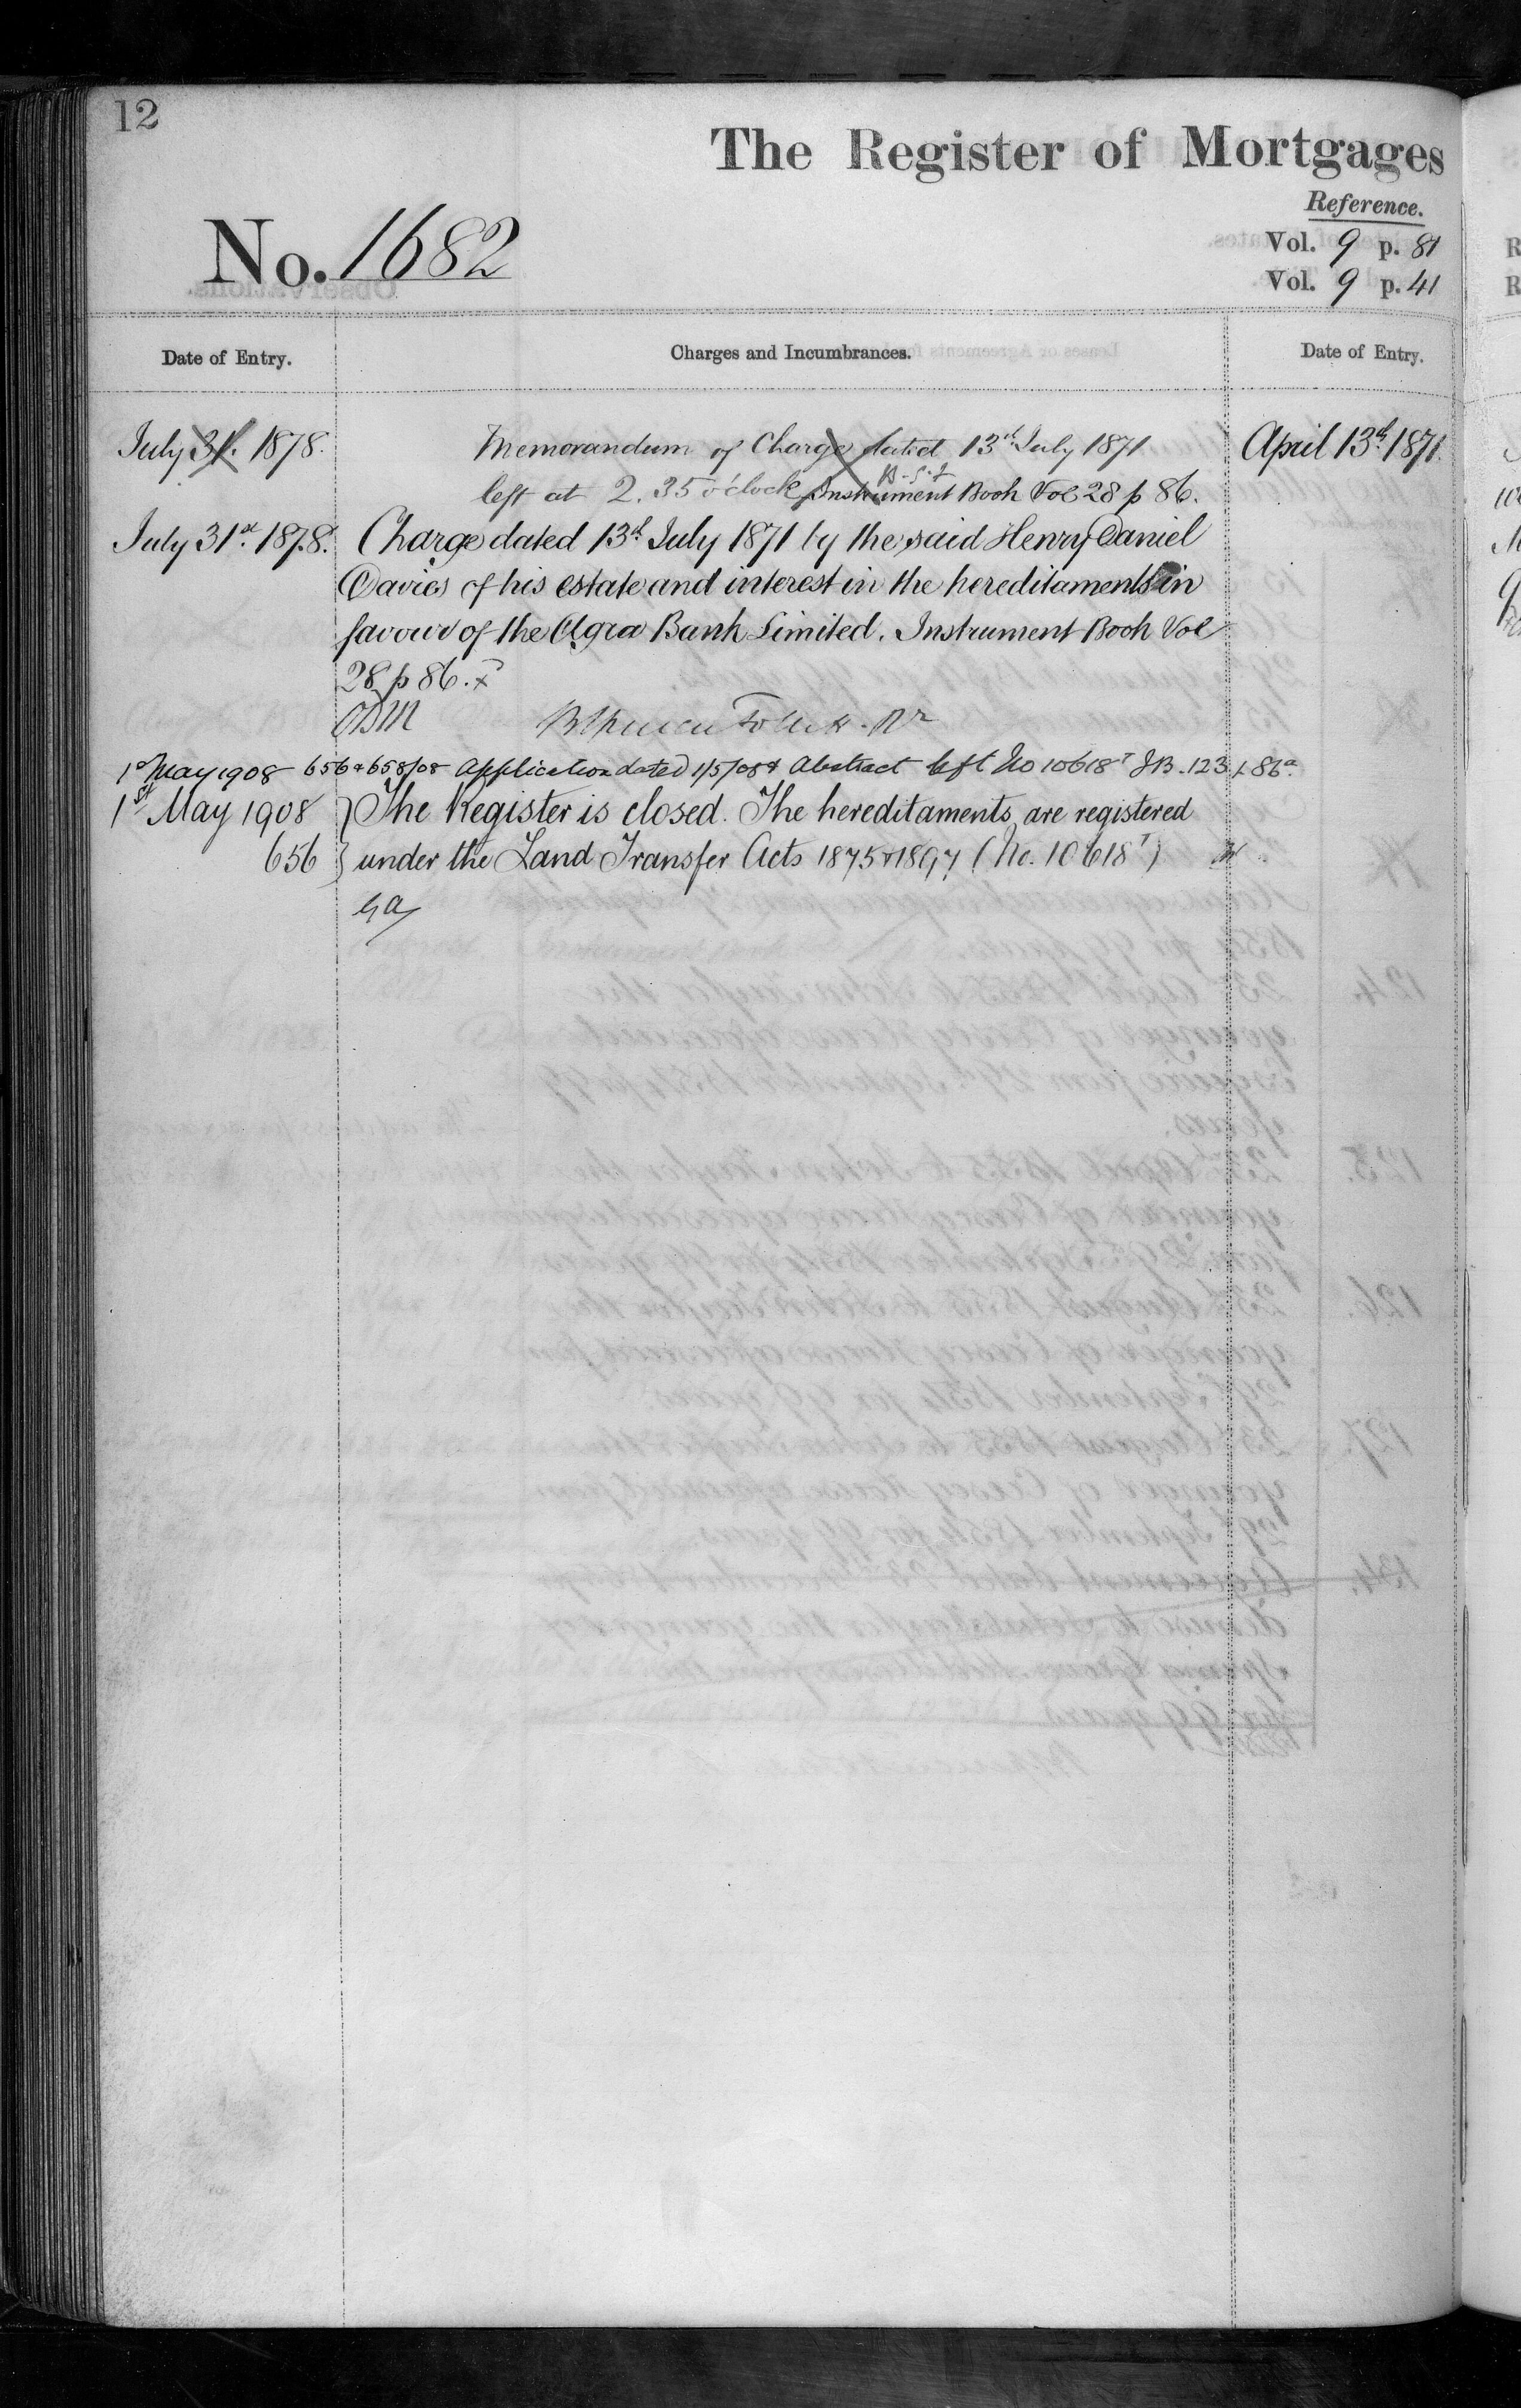 12
The Register of Mortgages
Reference.
No. 1682
Vol. 9 p. 81
Vol. 9 p. 41
Date of Entry.
Charges and Incumbrances.
Date of Entry.
July 31st. 1878.
Memorandum of Charge dated 13th July 1871
April 13th 1871.
left at 2.35 o'clock Instrument Book Vol 28 p 86.
July 31st. 1878.
Charge dated 13th July 1871 by the said Henry Daniel
Davies of his estate and interest in the hereditaments in
favour of the Agra Bank Limited. Instrument Book Vol
28 p 86.
1st May 1908 656 & 658/08 Application dated 1/5/08 & Abstract left No 10618T IB. 123 f. 86a.
1st May 1908
The Register is closed. The hereditaments are registered
656
under the Land Transfer Acts 1875 & 1897 (No. 10618T)